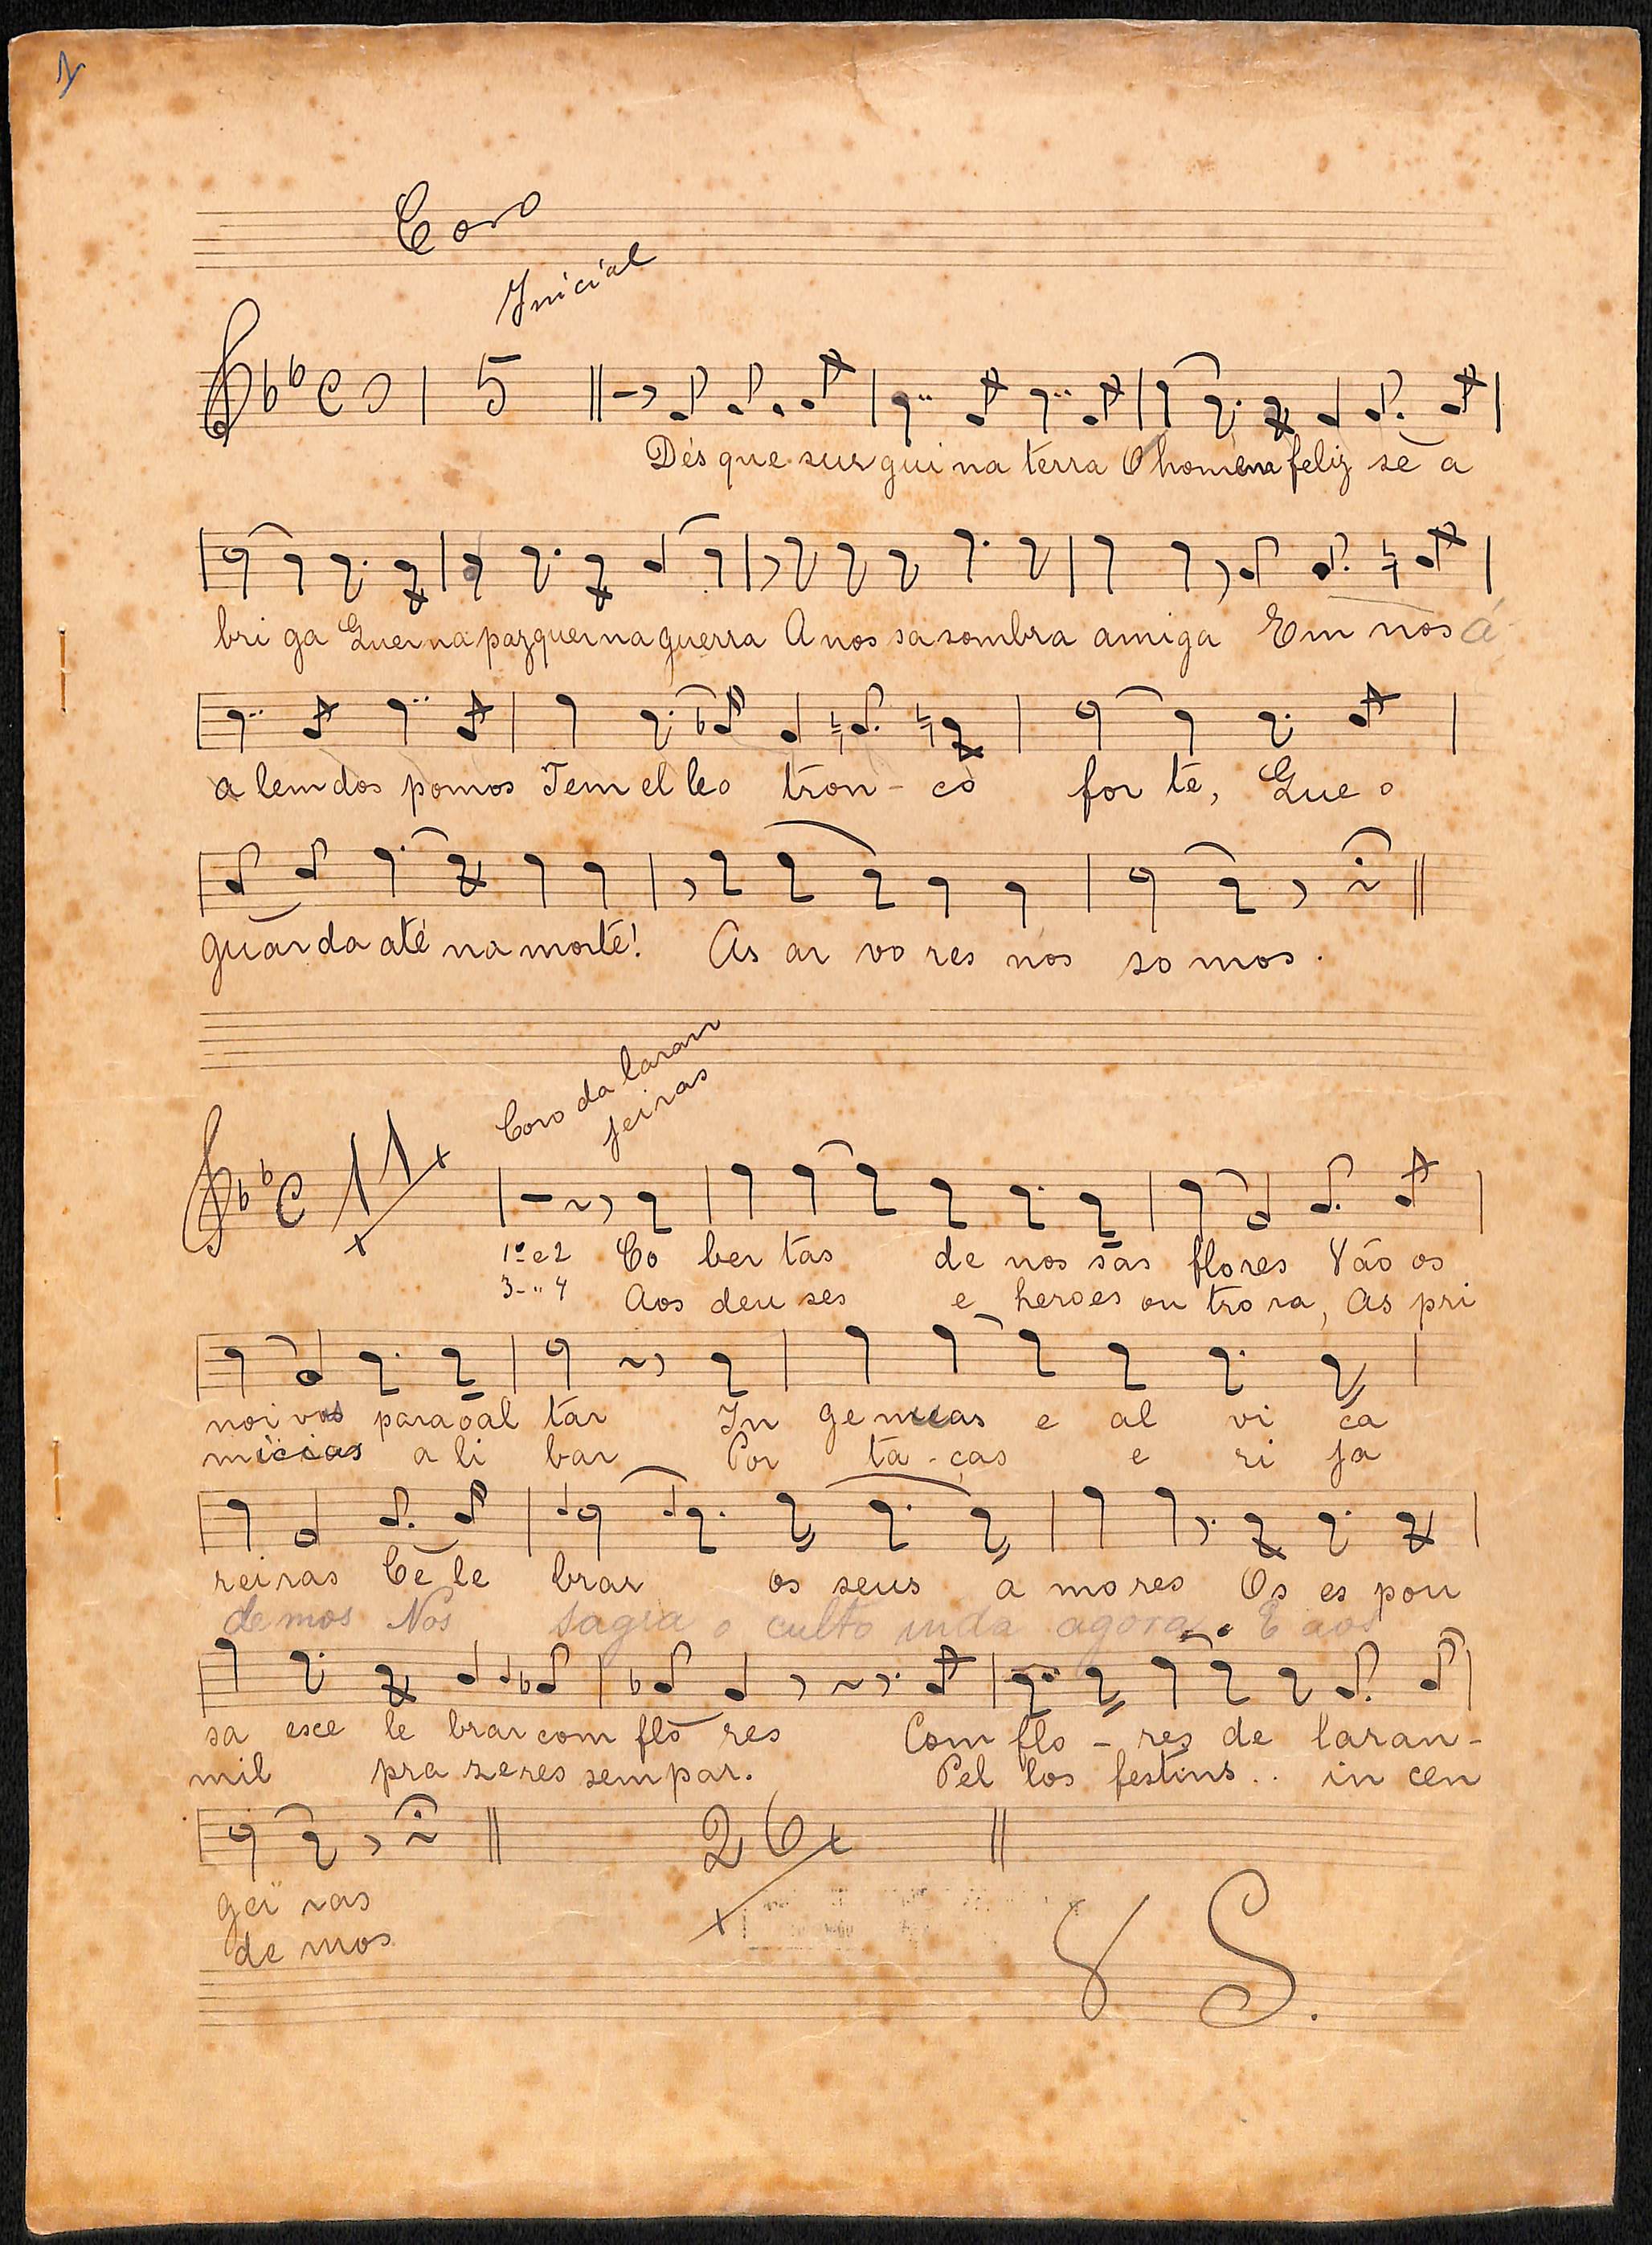 1
Coro
Inicial
5
Dés que surgui na terra O homem feliz se a
bri ga Quer na paz quer na guerra A nos sa sombra amiga Em nos á
a lem dos pomos Tem el le o tron - co for te, Que o
guarda até na morte! As ar vo res nós so mos.
Coro da laran
jeiras
11
1º e 2 Co ber tas de nos sas flores Vão os
3 - " 4 Aos deu ses e heroes ou tro ra, As pri
noi vos para o al tar In genuas e al vi ça
micias a li bar Por ta - ças e ri ja
reiras Ce le brar os seus a mo res Os es pon
demos Nos sagra o culto inda agora. E aos
sa es ce le brar com flo res Com flo - res de laran -
mil pra zeres sem par. Pel los festins.. in cen
gei ras
de mos
26
V S.